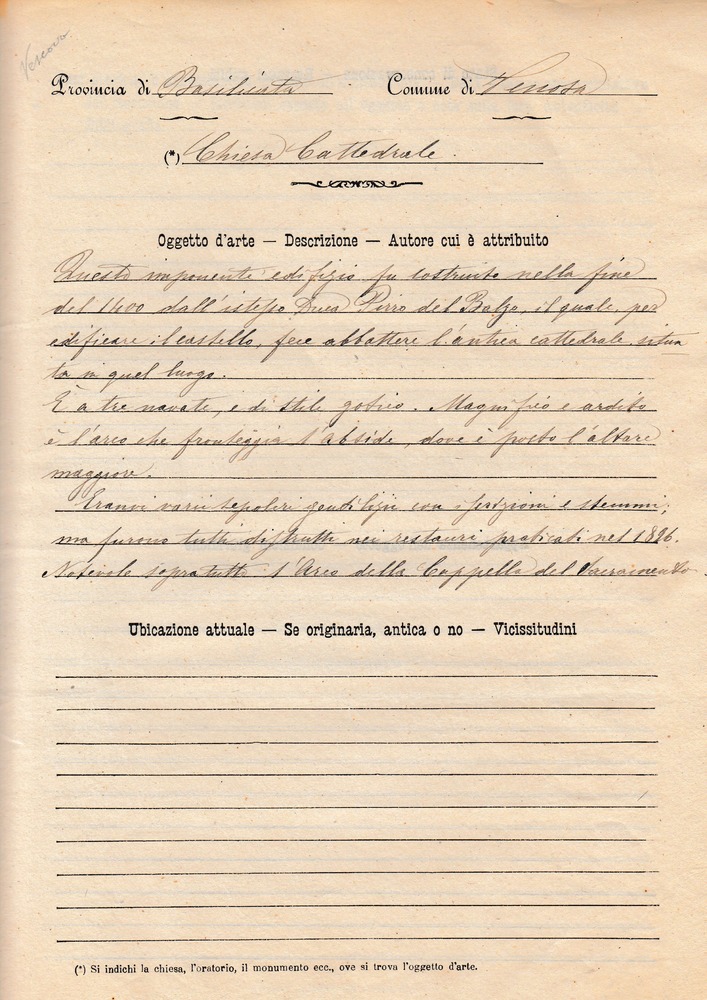 Vescovo
Provincia di Basilicata Comune di Venosa
(*) Chiesa Cattedrale.
Oggetto d'arte — Descrizione — Autore cui è attribuito
Questo imponente edifizio fu costruito nella fine
del 1400 dall'istesso Duca Pirro del Balzo, il quale, per
edificare il castello, fece abbattere l'antica cattedrale, situa
ta in quel luogo.
È a tre navate, e di stile gotico. Magnifico e ardito
è l'arco che fronteggia l'abside, dove è posto l'altare
maggiore.
Eranvi varii sepolcri gentilizii con iscrizioni e stemmi,
ma furono tutti distrutti nei restauri praticati nel
Notevole sopratutto l'Arco della Cappella del Sacramento.
Ubicazione attuale — Se originaria, antica o no — Vicissitudini
(*) Si indichi la chiesa, l'oratorio, il monumento ecc., ove si trova l'oggetto d'arte.